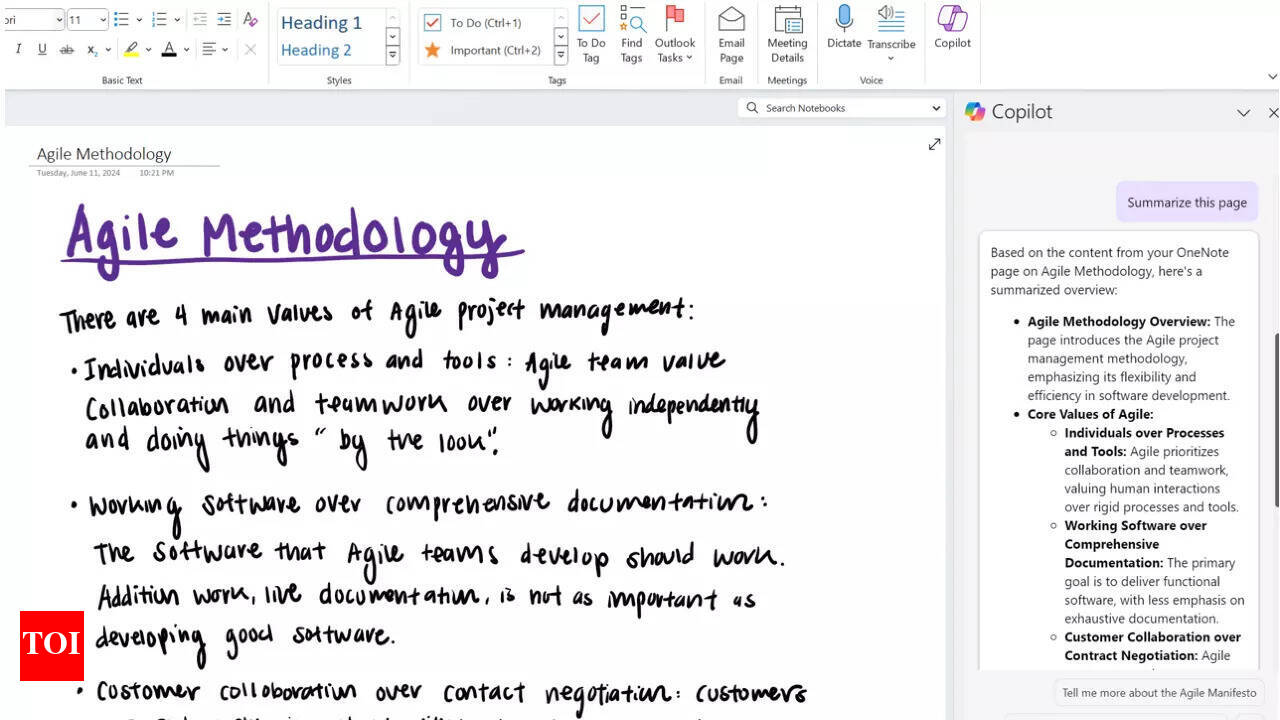 11
To Do (Ctrl+1)
Important (Ctrl+2)
Heading 1
Heading 2
I U ab x₂ A
To Do
Tag
Find
Tags
Outlook
Tasks
Email
Page
Meeting
Details
Dictate
Transcribe
Copilot
Basic Text
Styles
Tags
Email
Meetings
Voice
Search Notebooks
Agile Methodology
Tuesday, June 11, 2024 10:21 PM
Agile Methodology
There are 4 main values of Agile project management:
• Individuals over process and tools: Agile team value
Collaboration and teamwork over working independently
and doing things "by the look".
• Working software over comprehensive documentation:
The software that Agile teams develop should work.
Addition work, like documentation, is not as important as
developing good software.
• Customer collaboration over contact negotiation: customers
TOI
Copilot
Summarize this page
Based on the content from your OneNote
page on Agile Methodology, here's a
summarized overview:
• Agile Methodology Overview: The
page introduces the Agile project
management methodology,
emphasizing its flexibility and
efficiency in software development.
• Core Values of Agile:
○ Individuals over Processes
and Tools: Agile prioritizes
collaboration and teamwork,
valuing human interactions
over rigid processes and tools.
○ Working Software over
Comprehensive
Documentation: The primary
goal is to deliver functional
software, with less emphasis on
exhaustive documentation.
○ Customer Collaboration over
Contract Negotiation: Agile
Tell me more about the Agile Manifesto